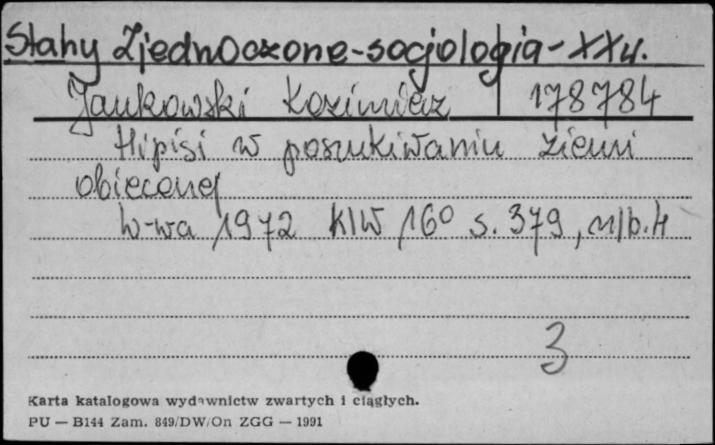 Stany Zjednoczone-socjologia-XXw.
Jankowski Kazimierz 178784
Hipisi w poszukiwaniu ziemi
obiecanej
W-wa 1972 KIW 16° s. 379, nlb. 4
3
Karta katalogowa wydawnictw zwartych i ciągłych.
PU — B144 Zam. 849/DW/On ZGG — 1991